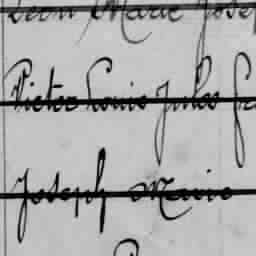 Léon Marc Jose
Victor Louis Jules
Joseph Marie